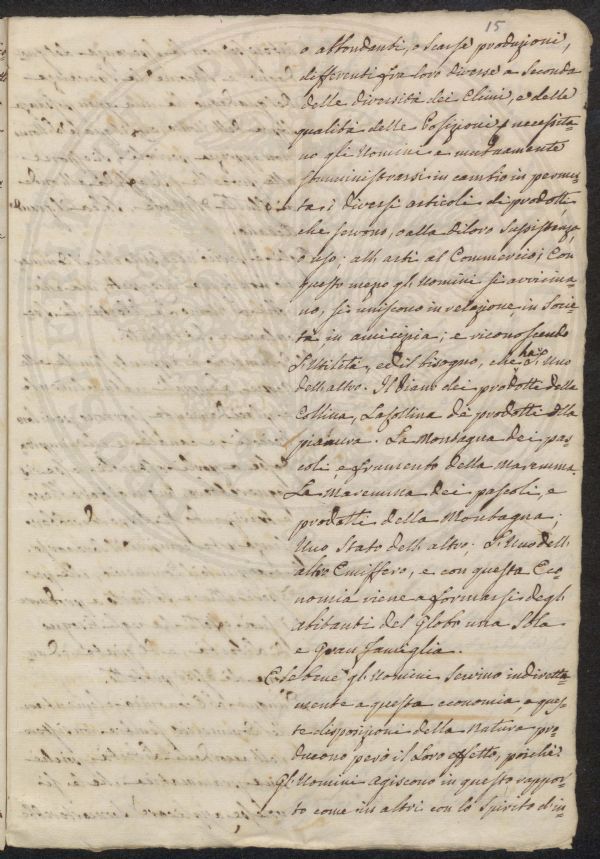 15
o abbondanti, o scarse produzioni,
differenti fra loro diverse a seconda
delle diversità dei Climi, e delle
qualità delle Posizioni necessita=
no gli Uomini e mutuamente
somministrarsi in cambio in permu
ta i diversi articoli di prodotti
che servono, o alla di loro Sussistenza,
o uso; alle arti al Commercio; Con
questo mezo gli Uomini si avvicina=
no, si uniscono in relazione, in Socie
tà in amicizia; e riconoscendo
l'Utilità, ed il bisogno, che ha l'Uno
dell'altro. Il Piano dei prodotti della
Collina, La Collina dei prodotti della
pianura. La Montagna dei pas=
coli, e frumento della Maremma.
La Maremma dei pascoli, e
prodotti della Montagna;
Uno Stato dell'altro; L'Uno dell'
altro Emiffero, e con questa Eco=
nomia viene a formarsi degli
abitanti del Globo una Sola
e Gran famiglia.
E sebene gli Uomini Servino indiretta=
mente a questa economia, e ques=
te disposizioni della Natura pro=
ducono però il Loro effetto, poichè
Gli Uomini agiscono in questo rappor=
to come in altri con lo Spirito d'in=